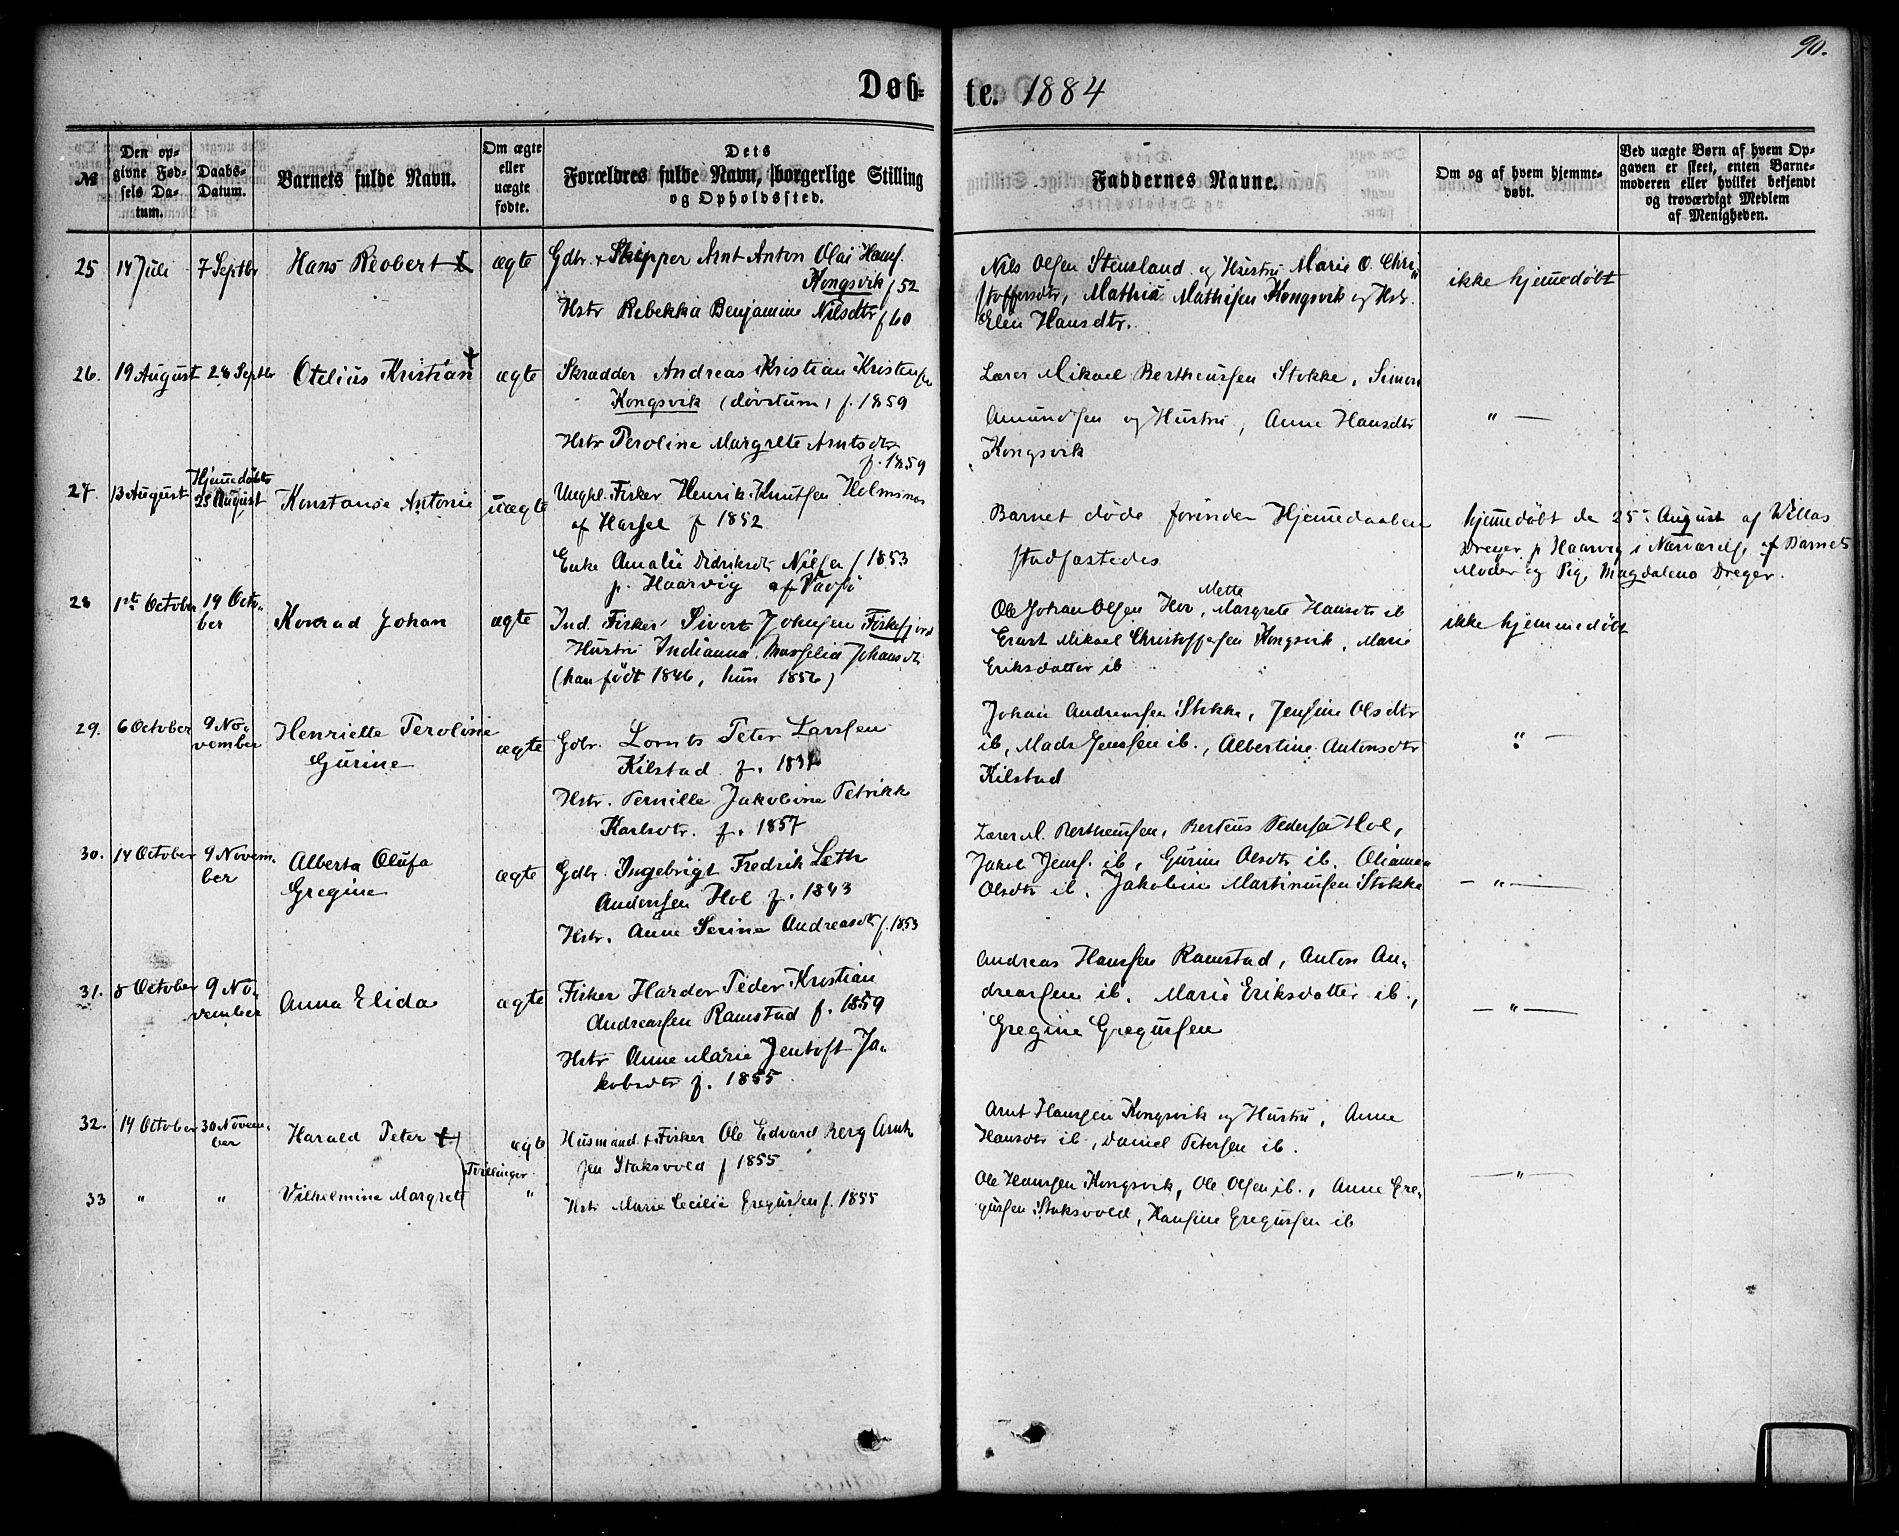 90.
Døb-te. 1884
№
Den opgivne Fødsels Datum.
Daabs-Datum.
Barnets fulde Navn.
Om ægte eller uægte fødte.
Dets Forældres fulde Navn, borgerlige Stilling og Opholdssted.
Faddernes Navne.
Om og af hvem hjemmedøbt.
Ved uægte Børn af hvem Opgaven er skeet, enten Barnemoderen eller hvilket bekjendt og troværdigt Medlem af Menigheden.
25 14 Juli 7 Septbr Hans Reobert ægte
Gdbr. + Skipper Arnt Anton Olai Hansf.
Kongsvik f 52
Hstr Rebekka Benjamine Nilsdtr f 60
Nils Olsen Stensland og Hustru Marie O. Chri
stoffersdtr, Mathis Mathisen Kongsvik og Hstr.
Elen Hansdtr.
ikke hjemmedøbt
26. 19 August 28 Septbr Otelius Kristian † ægte
Skrædder Andreas Kristian Kristensen
Kongsvik (døvstum) f. 1859
Hstr Peroline Margrete Arntsdtr
f. 1859
Lærer Mikael Bertheussen Stokke, Simon
Amundsen og Hustru, Anne Hansdtr
Kongsvik
" —
27. 13 August Hjemmedøbt 25 August Konstanse Antonie uægte
Ungkl. Fisker Henrik Knutsen Holmsnes
af Hassel f 1852
Enke Amalie Didriksdtr Nilsen f 1853
p. Haarvig af
Barnet døde forinden Hjemmedaaben
stadfæstedes
hjemmedøbt de 25de August af Willas
Dreyer p Haarvig i af Barnets
Moder og Pig. Magdalena Dreyer.
28 1ste October 19 October Konrad Johan ægte
Ind. Fisker Sivert Johnsen Fiskefjord
Hustru Indianna Johansdtr
(han født 1846, hun 1856)
Ole Johan Olsen Hov, Mette Margrete Hansdtr ib
Ernst Mikael Christoffersen Kongsvik, Marie
Eriksdatter ib
ikke hjemmedøbt
29. 6 October 9 November Henriette Peroline
Gurine
ægte
Gdbr. Lornts Peter Larssen
Kilstad f.
Hstr. Pernille Jakobine Petrikke
Karlsdtr. f. 1857
Johan Andreassen Stokke, Jensine Olsdtr
ib, Mads Jenssen ib., Albertine Antonsdtr
Kilstad
" —
30. 14 October 9 November Alberta Olufa
Gregine
ægte
Gdbr. Ingebrigt Fredrik Leth
Anderssen Hol f. 1843
Hstr. Anne Serine Andreasdtr f. 1853
Lærer M. Bertheussen, Berteus Pedersen Hol,
Jakob Jensf. ib, Gurine Olsdtr ib. Oliane
Olsdtr ib. Jakobine Martinussen Stokke
— " —
31. 8 October 9 November Anna Elida ægte
Fisker Hardor Peder Kristian
Andreassen Ramstad f. 1859
Hstr Anne Marie Jentoft Ja-
kobsdtr f. 1855
Andreas Hanssen Ramstad, Anton An-
dreassen ib. Marie Eriksdatter ib.,
Gregine Gregussen
— " —
32. 14 October 30 November Harald Peter † ægte
Husmand + Fisker Ole Edvard Berg Arnt
sen Stoksvold f 1855
Tvillinger
Arnt Hanssen Kongsvik og Hustru, Anne
Hansdtr ib, Daniel Petersen ib.
— " —
33 " " Vilhelmine Margrete "
Hstr Marie Cecilie Gregussen f. 1855
Ole Hanssen Kongsvik, Ole Olsen ib., Anne Gre-
gussen Stoksvold, Hansine Gregussen ib